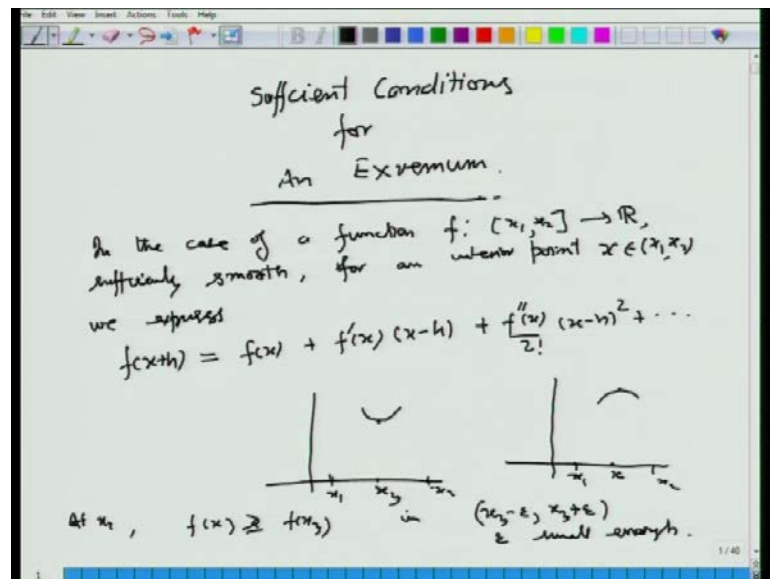 File Edit View Insert Actions Tools Help
Suffcient Conditions
for
An Exremum.
In the case of a function f: [x₁, x₂] → ℝ,
sufficiently smooth, for an interior point x ∈ (x₁, x₂)
we express
f(x+h) = f(x) + f'(x) (x-h) + f''(x)/2! (x-h)² + ...
x₁ x₃ x₂ x₁ x x₂
At x₂, f(x) ≥ f(x₃) in (x₃-ε, x₃+ε)
ε small enough.
1 / 40
1